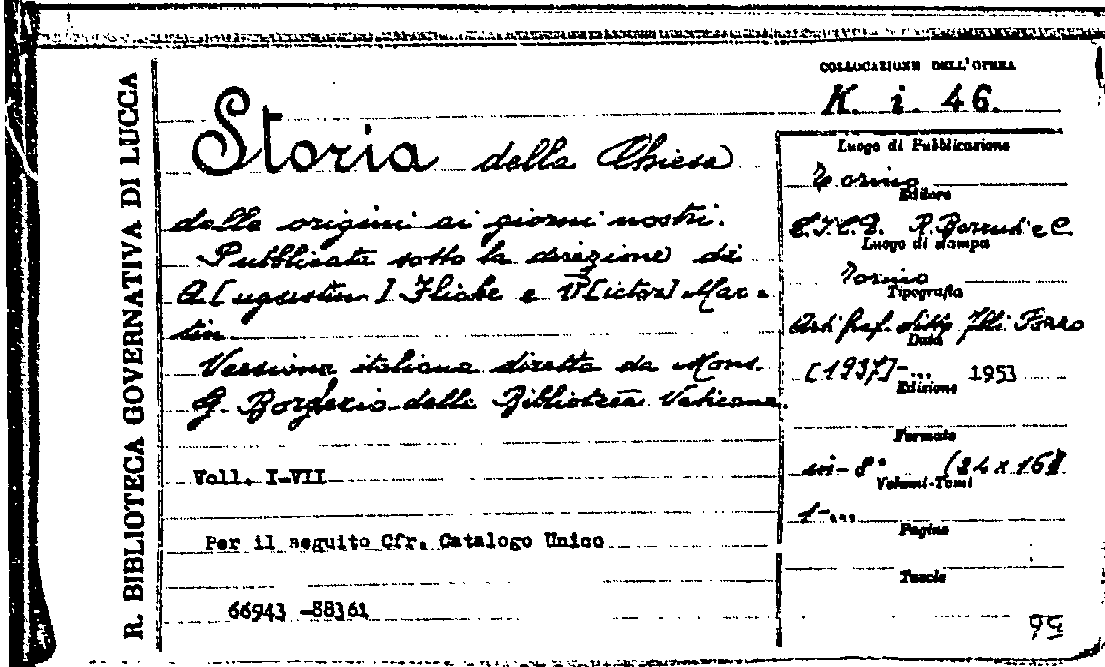 R. BIBLIOTECA GOVERNATIVA DI LUCCA
COLLOCAZIONE DELL'OPERA
K. i. 46.
Storia della Chiesa
dalle origini ai giorni nostri.
Pubblicata sotto la direzione di
A[ugustin] Fliche e V[ictor] Mar-
tin
Versione italiana diretta da Mons.
G. Borghezio della Biblioteca Vaticana.
Voll. I-VII
Per il seguito Cfr. Catalogo Unico
66943 -88361
Luogo di Pubblicazione
Torino
Editore
R. Berruti e C.
Luogo di stampa
Torino
Tipografia
Data
[1937]-... 1953
Edizione
Formato
in-8° (24x16)
Volumi-Tomi
1-...
Pagine
Tavole